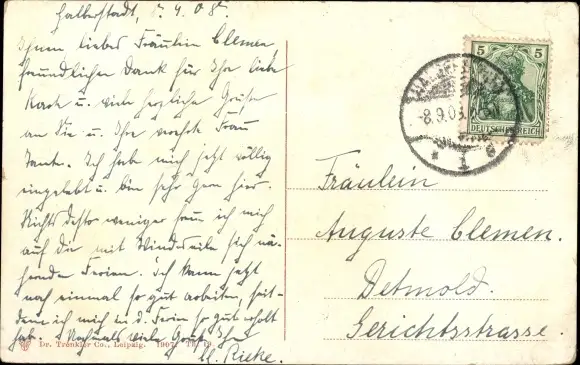 Halberstadt, 8.9.08.
Ihnen liebes Fräulein Clemen
freundlichen Dank für Ihre liebe
Karte u. viele herzliche Grüße
an Sie u. Ihre werte Frau
Tante. Ich habe mich jetzt völlig
eingelebt u. bin sehr gern hier.
Nichts desto weniger freue ich mich
auf die mit Windeseile sich nä-
hernde Ferien. Ich kann jetzt
noch einmal so gut arbeiten, seit-
dem ich mich in d. Ferien so gut erholt
hab. Nochmals viele Grüße Ihr
H. Rieke.
Dr. Trenkler Co., Leipzig. 1907.
5 5
DEUTSCHES REICH
-8.9.08.
1
Fräulein
Auguste Clemen.
Detmold.
Gerichtsstrasse.